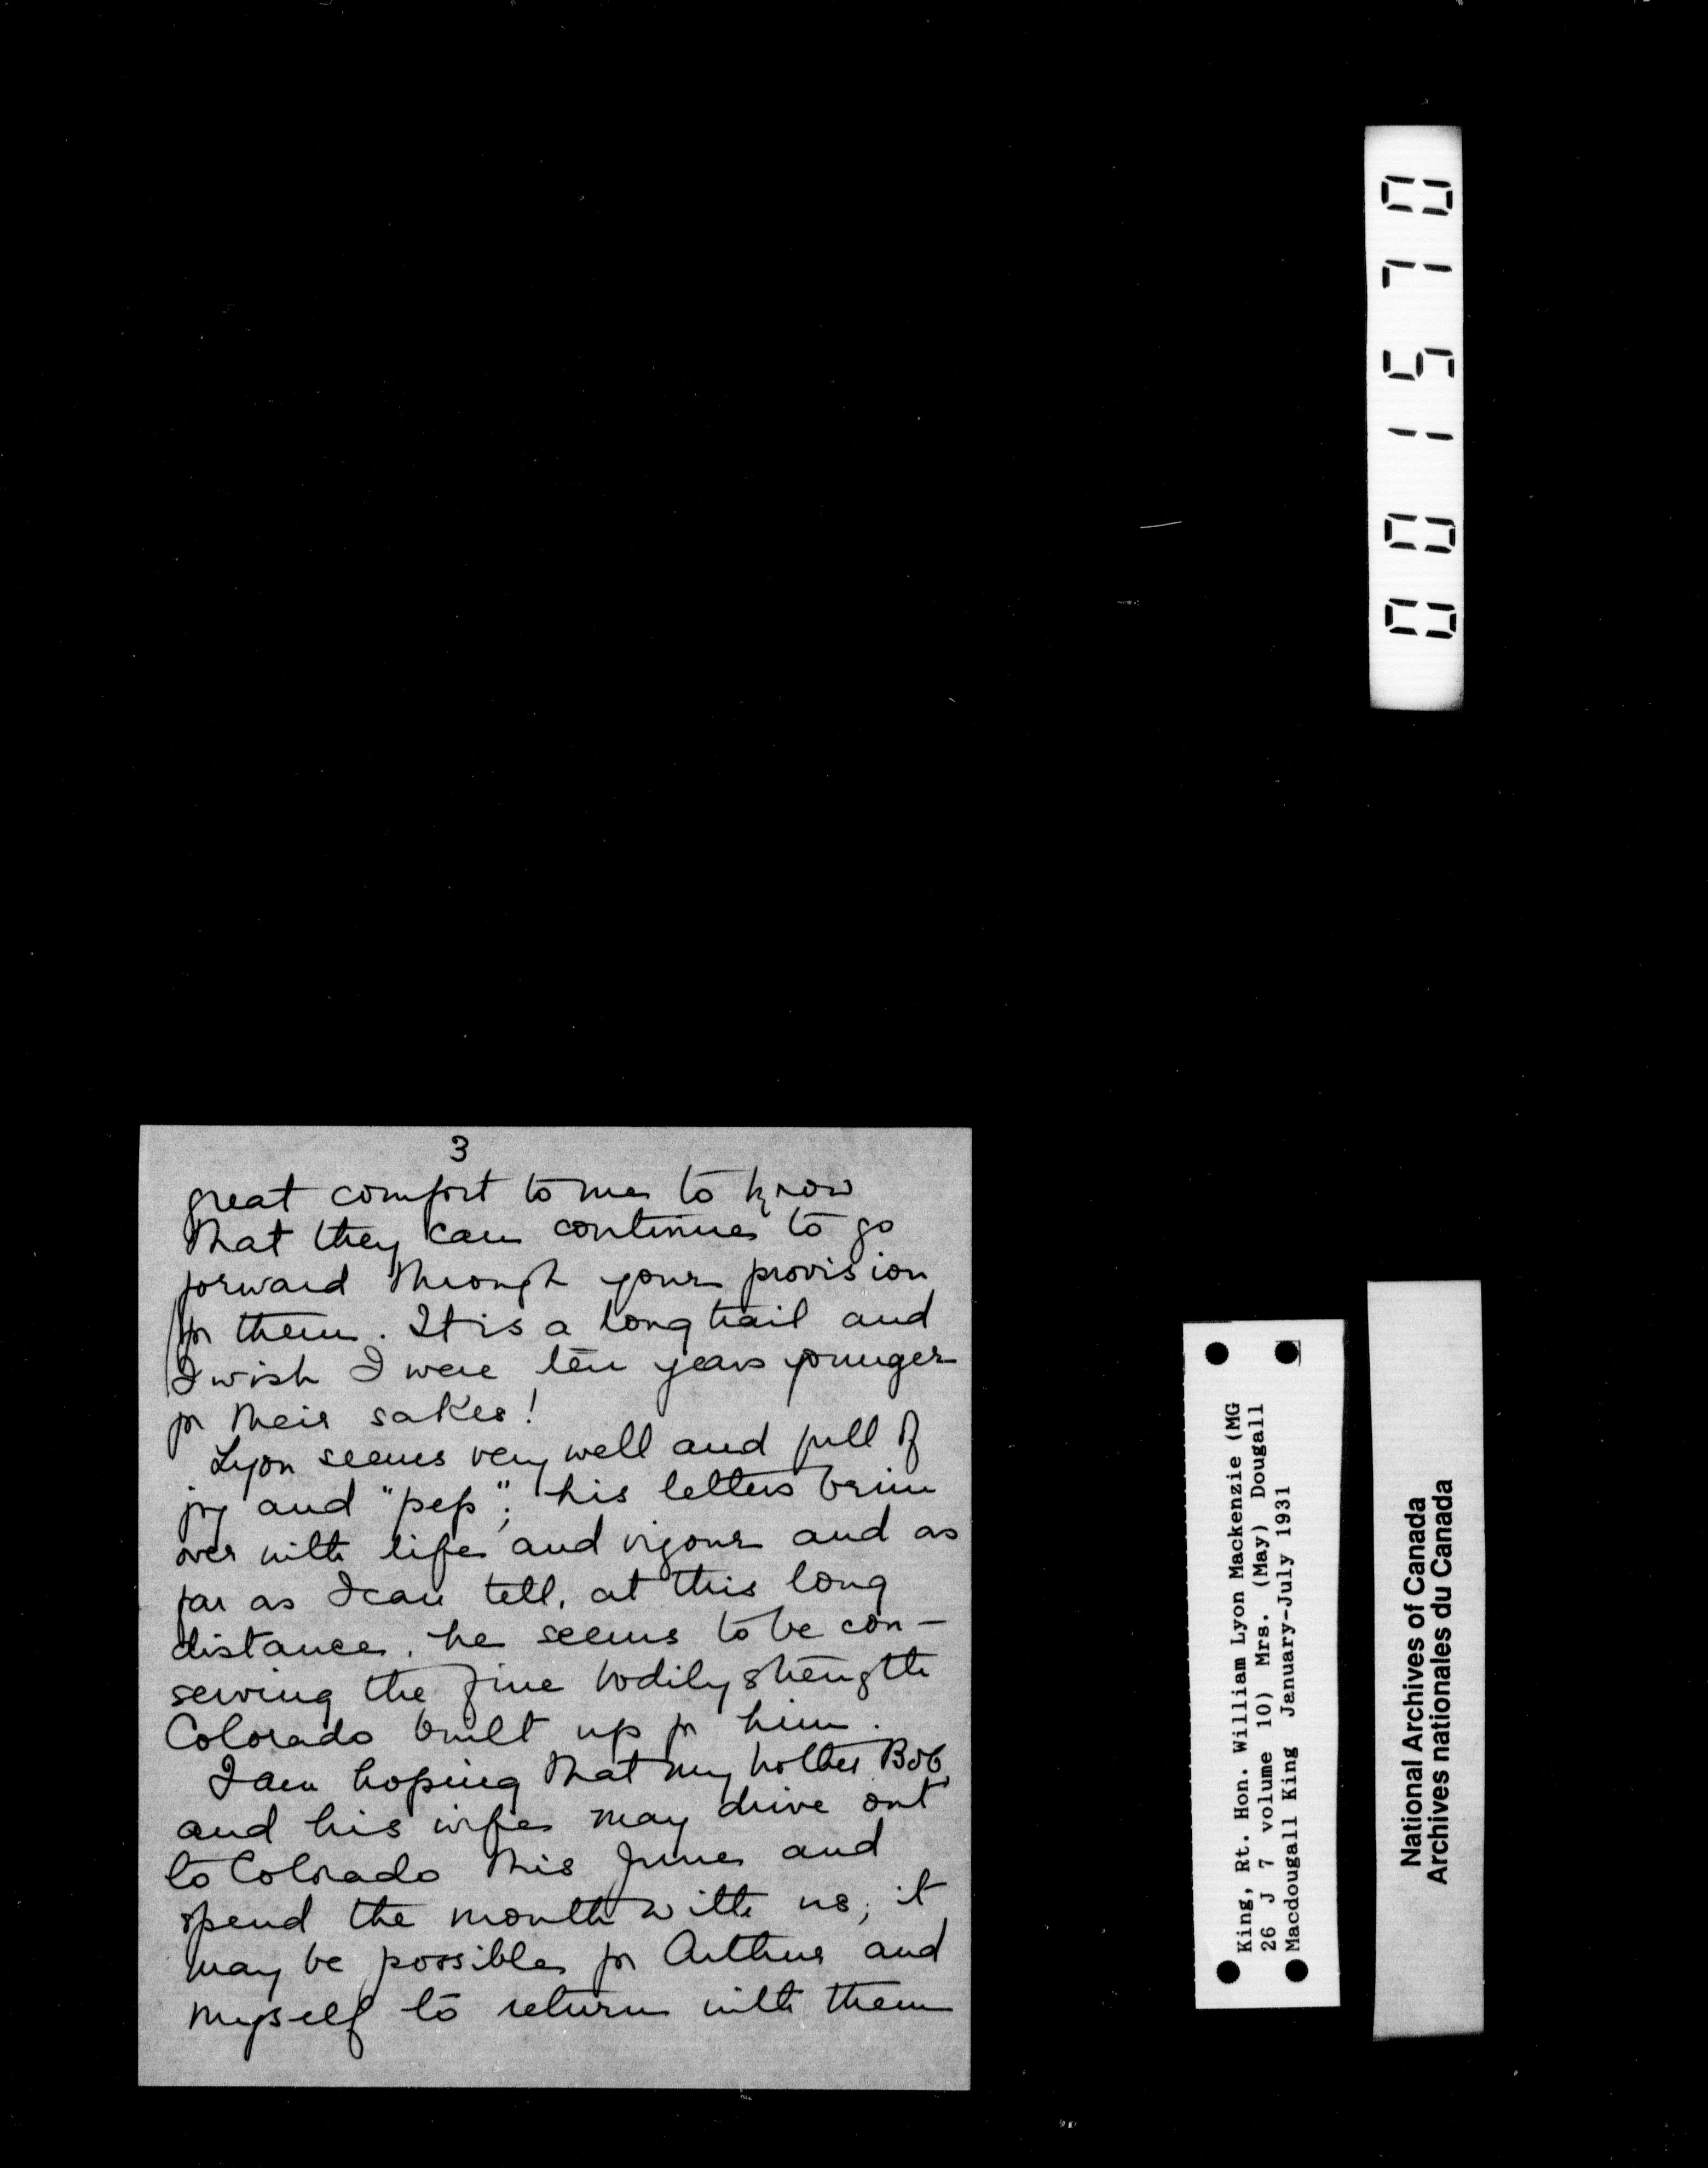 3
great comfort to me to know
that they can continue to go
forward through your provision
for them. It is a long trail and
I wish I were ten years younger
for their sakes!
Lyon seems very well and full of
joy and "pep"; his letters brim
over with life and vigour and as
far as I can tell, at this long
distance, he seems to be con-
serving the fine bodily strength
Colorado built up for him.
I am hoping that my brother Bob,
and his wife may drive out
to Colorado this June and
spend the month with us; it
may be possible for Arthur and
myself to return with them
001570
King, Rt. Hon. William Lyon Mackenzie (MG
26 J 7 volume 10) Mrs. (May) Dougall
Macdougall King January-July 1931
National Archives of Canada
Archives nationales du Canada